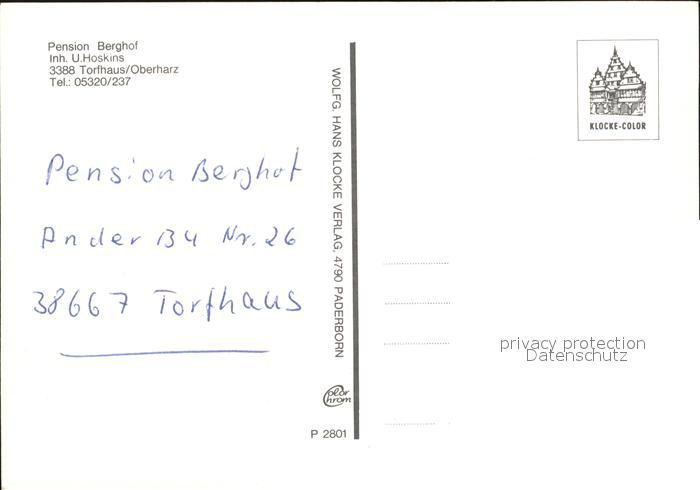 Pension Berghof
Inh. U.Hoskins
3388 Torfhaus/Oberharz
Tel.: 05320/237
Pension Berghof
An der B4 Nr. 26
38667 Torfhaus
WOLFG. HANS KLOCKE VERLAG, 4790 PADERBORN
Color
Chrom
P 2801
KLOCKE-COLOR
privacy protection
Datenschutz